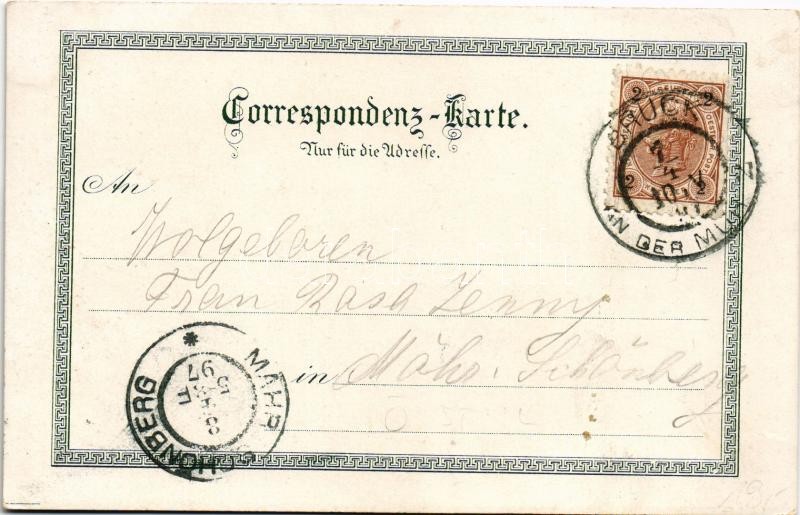 Correspondenz-Karte.
Nur für die Adresse.
An
Wolgeboren
Frau Rosa Jenny
in Mähr. Schönberg
2 2
2 2
BRUCK
AN DER MUR
MÄHR. SCHÖNBERG
97